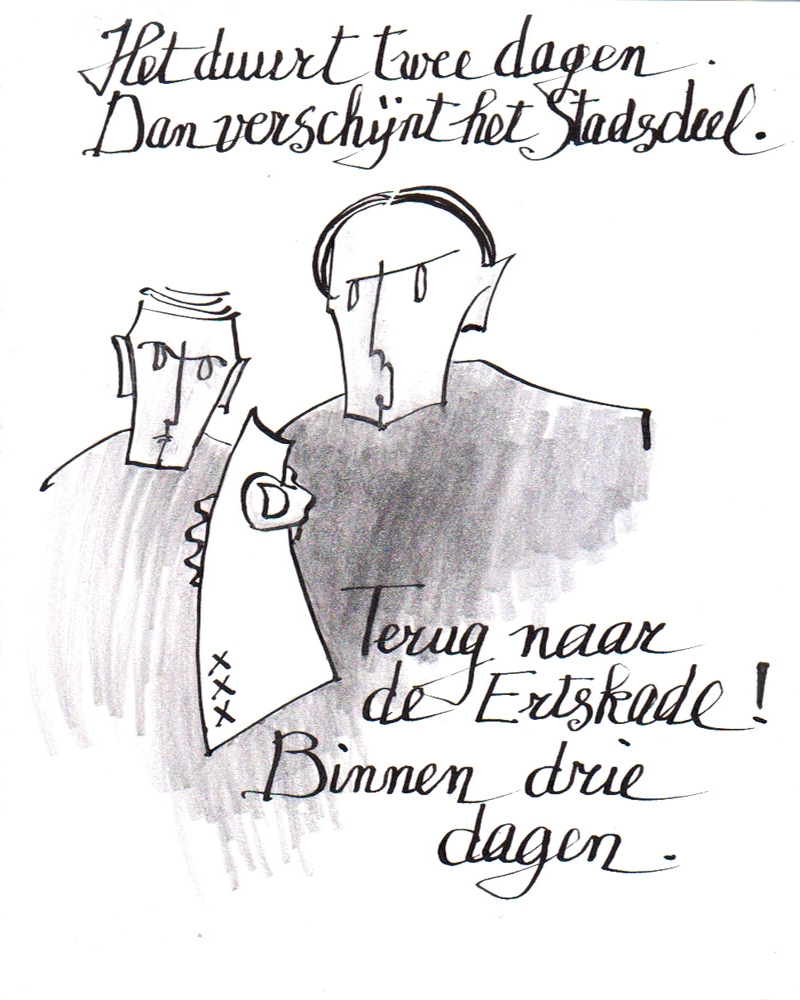 Het duurt twee dagen.
Dan verschijnt het Stadsdeel.
X
X
X
Terug naar
de Ertskade!
Binnen drie
dagen.